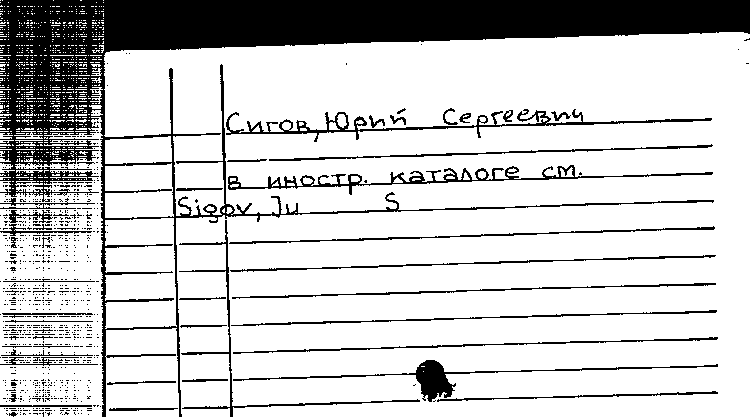 Сигов, Юрий Сергеевич
в иностр. каталоге см.
Sigov, Ju S